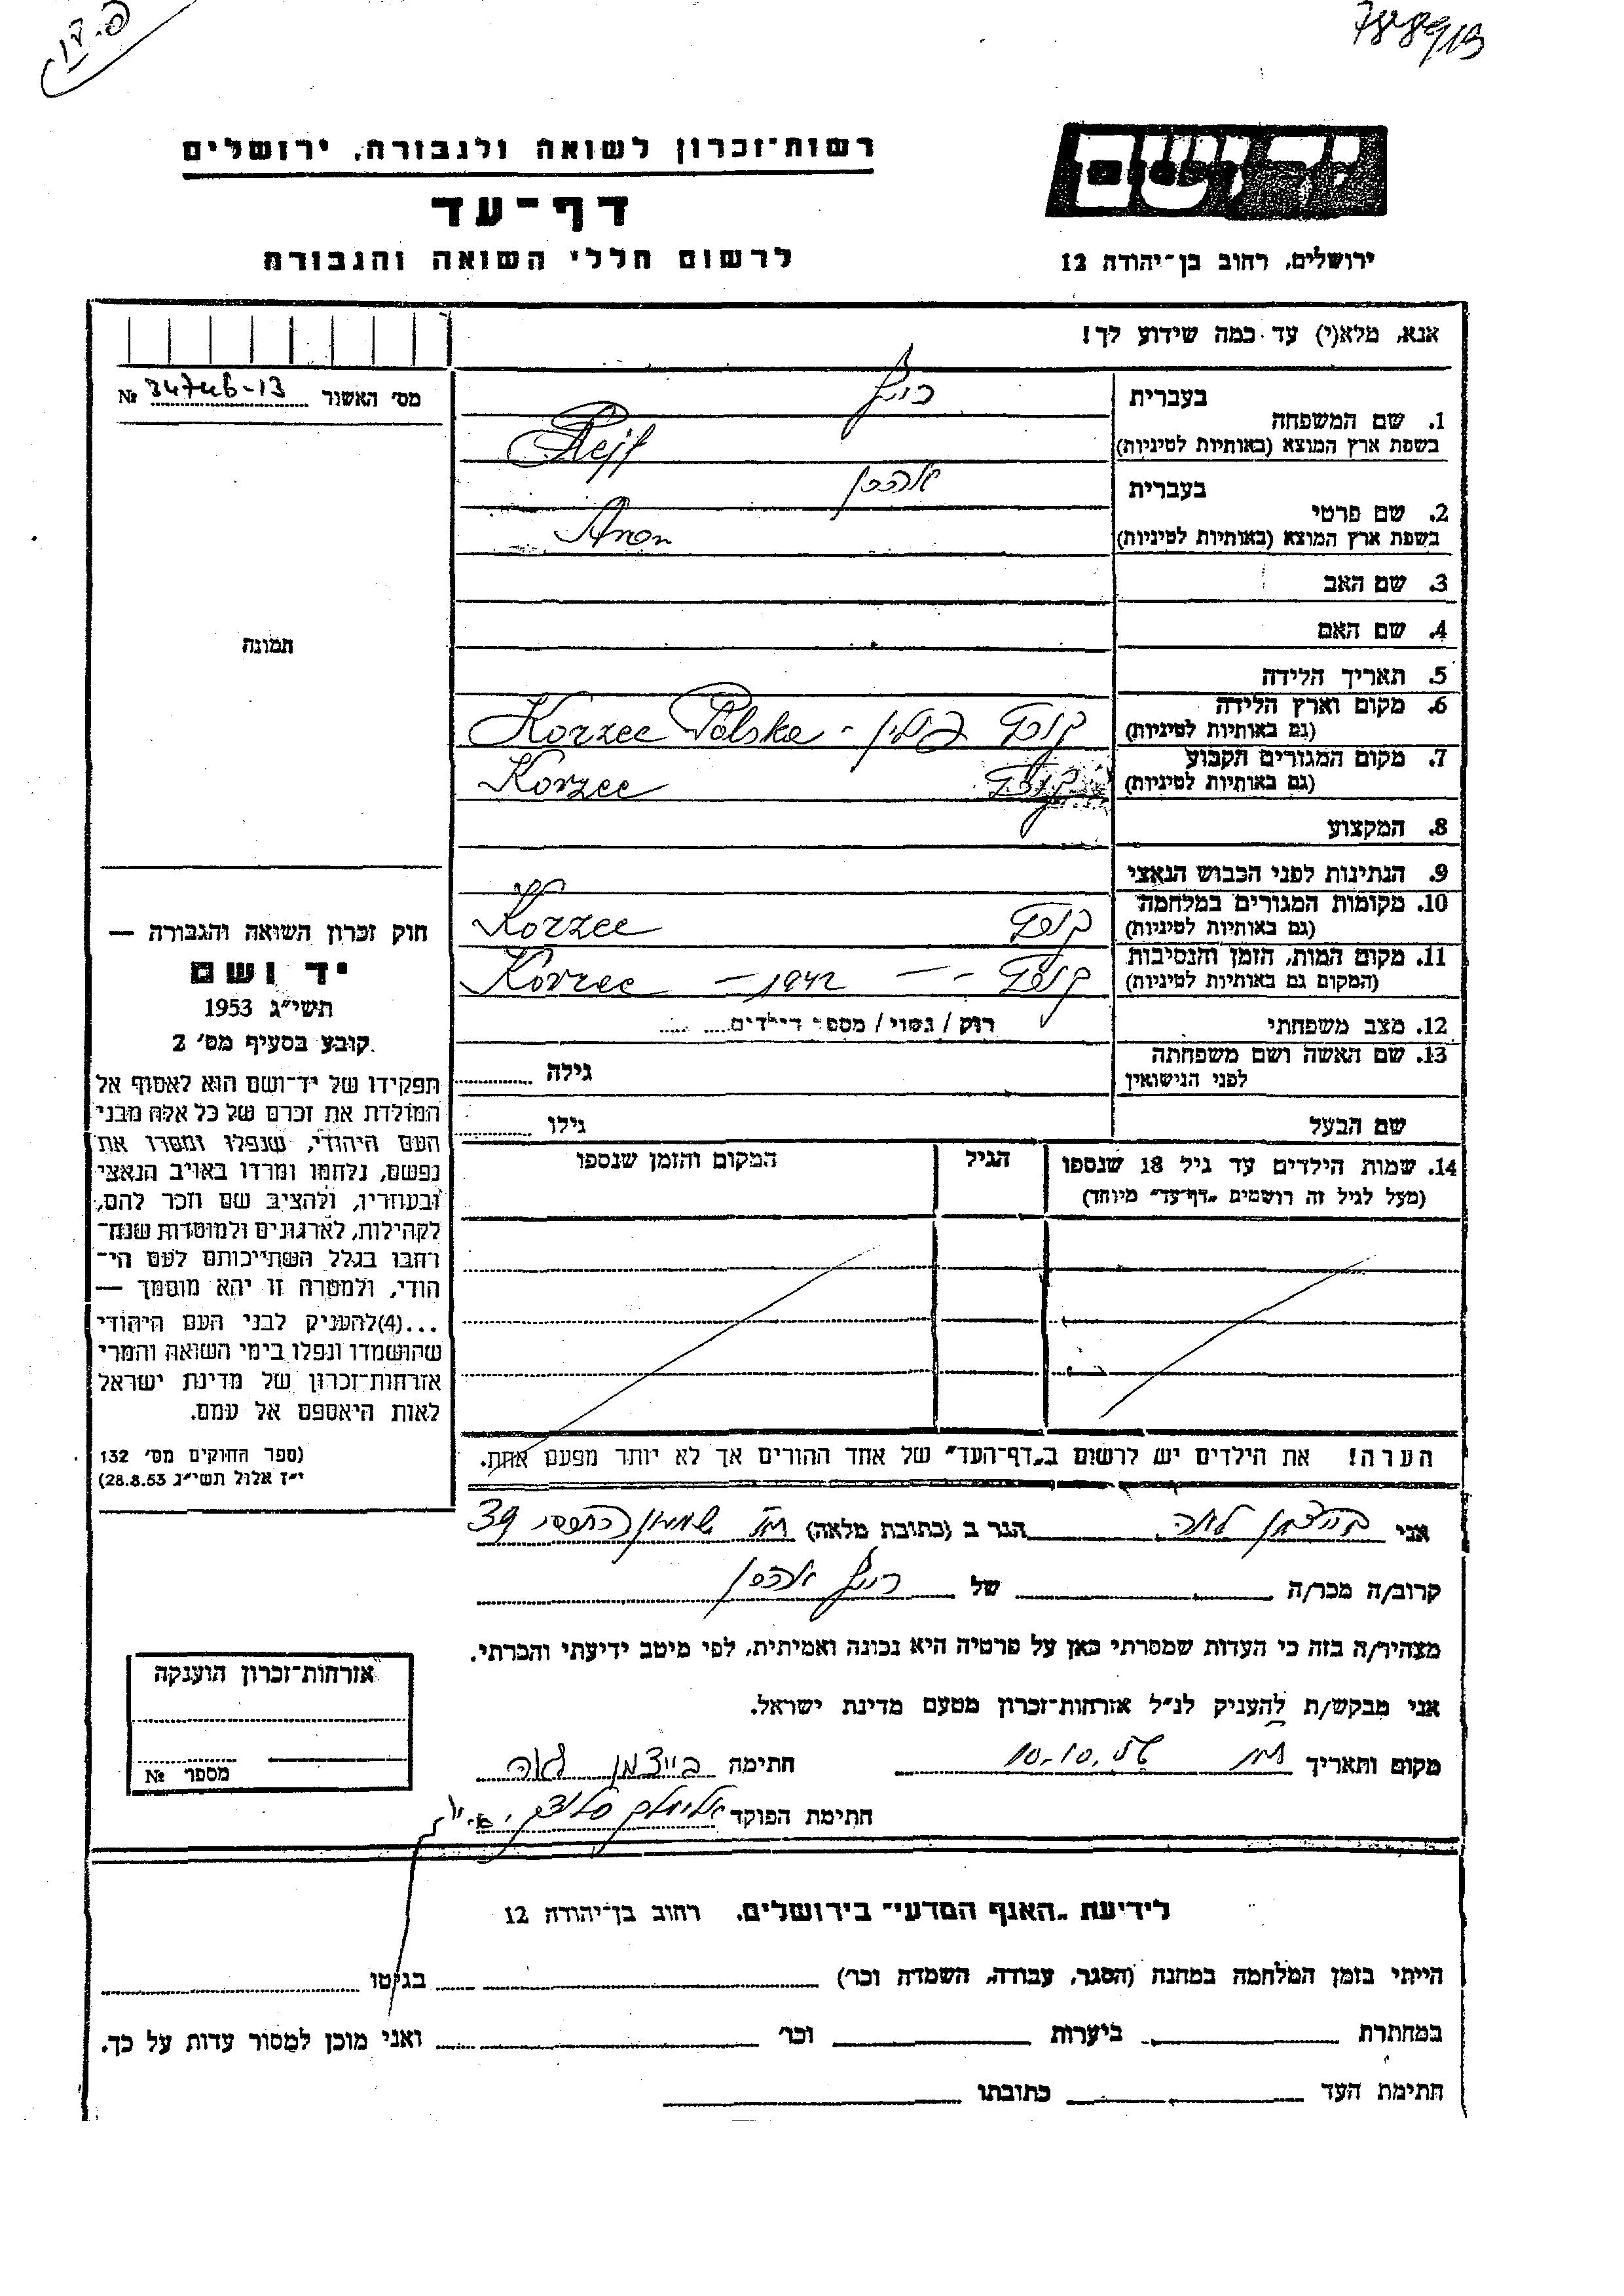 רשות־זכרון לשואה ולגבורה, ירושלים
דף־עד
לרשום חללי השואה והגבורה
יד ושם
ירושלים, רחוב בן־יהודה 12
אנא, מלא(י) עד כמה שידוע לך!
מס׳ האשור 34746-13 №
תמונה
1. שם המשפחה
בעברית רייף
בשפת ארץ המוצא (באותיות לטיניות) Rejf
2. שם פרטי
בעברית אהרון
בשפת ארץ המוצא (באותיות לטיניות) Aron
3. שם האב
4. שם האם
5. תאריך הלידה
6. מקום וארץ הלידה
(גם באותיות לטיניות) קורץ פולין - Korzec Polska
7. מקום המגורים הקבוע
(גם באותיות לטיניות) קורץ Korzec
8. המקצוע
9. הנתינות לפני הכבוש הנאצי
10. מקומות המגורים במלחמה
(גם באותיות לטיניות) קורץ Korzec
11. מקום המות, הזמן והנסיבות
(המקום גם באותיות לטיניות) קורץ - 1942 - Korzec
12. מצב משפחתי רווק / נשוי / מספר הילדים
13. שם האשה ושם משפחתה
לפני הנישואין
גילה
שם הבעל גילו
14. שמות הילדים עד גיל 18 שנספו
(מעל לגיל זה רושמים „דף־עד״ מיוחד)
הגיל
המקום והזמן שנספו
הערה! את הילדים יש לרשום ב„דף־העד״ של אחד ההורים אך לא יותר מפעם אחת.
חוק זכרון השואה והגבורה —
יד ושם
תשי״ג 1953
קובע בסעיף מס׳ 2
תפקידו של יד־ושם הוא לאסוף אל
המולדת את זכרם של כל אלה מבני
העם היהודי, שנפלו ומסרו את
נפשם, נלחמו ומרדו באויב הנאצי
ובעוזריו, ולהציב שם וזכר להם,
לקהילות, לארגונים ולמוסדות שנח־
רבו בגלל השתייכותם לעם הי־
הודי, ולמטרה זו יהא מוסמך —
...(4)להעניק לבני העם היהודי
שהושמדו ונפלו בימי השואה והמרי
אזרחות־זכרון של מדינת ישראל
לאות היאספם אל עמם.
(ספר החוקים מס׳ 132
י״ז אלול תשי״ג 28.8.53)
אני לאה הגר ב (כתובת מלאה) 39
קרוב/ה מכר/ה של רייף אהרון
מצהיר/ה בזה כי העדות שמסרתי כאן על פרטיה היא נכונה ואמיתית, לפי מיטב ידיעתי והכרתי.
אני מבקש/ת להעניק לנ״ל אזרחות־זכרון מטעם מדינת ישראל.
מקום ותאריך 10.10. חתימה בייצמן לאה
חתימת הפוקד
אזרחות־זכרון הוענקה
מספר №
לידיעת „האגף המדעי״ בירושלים, רחוב בן־יהודה 12
הייתי בזמן המלחמה במחנה (הסגר, עבודה, השמדה וכר׳) בגיטו
במחתרת ביערות וכר׳ ואני מוכן למסור עדות על כך.
חתימת העד כתובתו